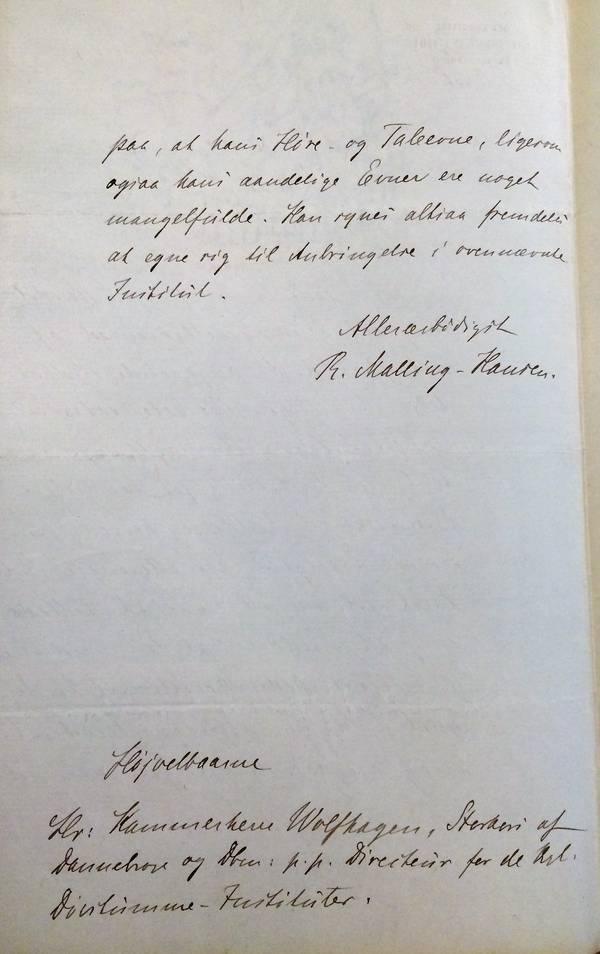 paa, at hans Høre- og Taleevne, ligesom
ogsaa hans aandelige Evner ere noget
mangelfulde. Han synes altsaa fremdeles
at egne sig til Anbringelse i ovennævnte
Institut.
Allerærbødigst
R. Malling-Hansen.
Højvelbaarne
Hr: Kammerherre Wolfhagen, Storkors af
Dannebroge og Dbm: p.p. Directeur for de Kgl.
Døvstumme-Institüter.